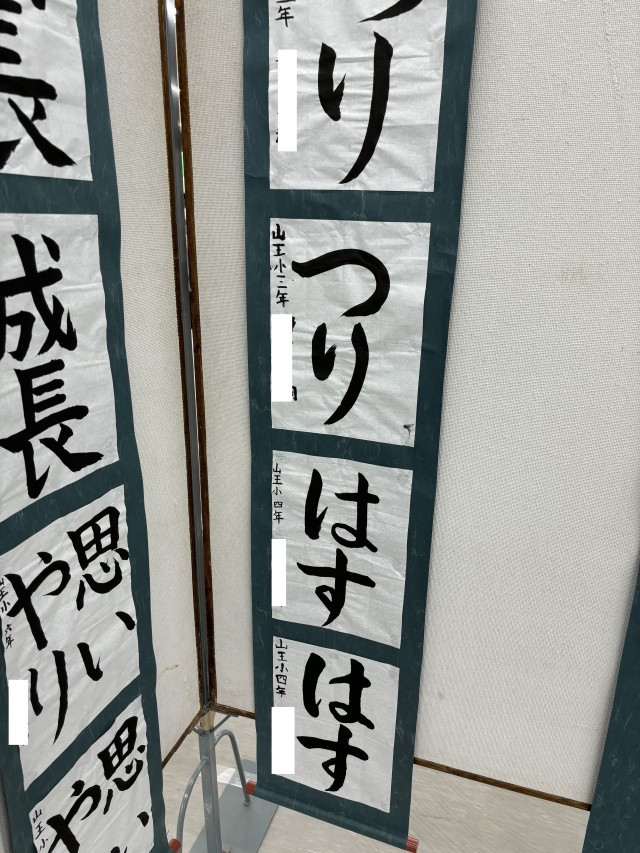 つり
年
つり
山王小三年
はす
山王小四年
はす
山王小四年
長
成長
思いやり
山王小六年
思いや
山王小